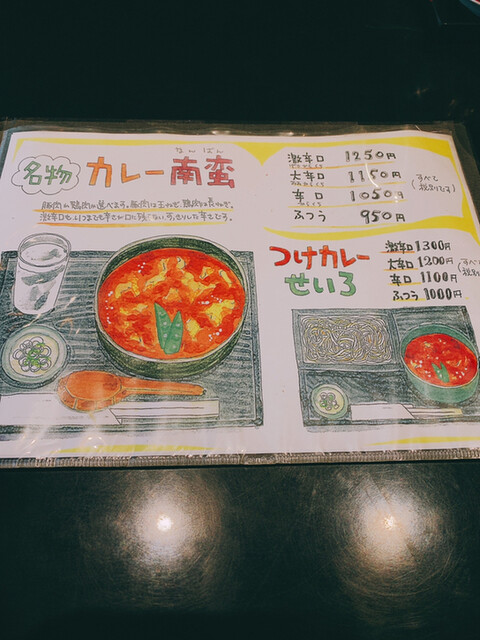 名物 カレー南蛮
なんばん
豚肉か鶏肉か選べます。豚肉は玉ねぎで、鶏肉は長ねぎで。
激辛口もいつまでも辛さが口に残らない、すっきりした辛さです。
激辛口 1250円
大辛口 1150円
辛口 1050円
ふつう 950円
(すべて
税別です)
つけカレー
せいろ
激辛口 1300円
大辛口 1200円
辛口 1100円
ふつう 1000円
(すべ
税別